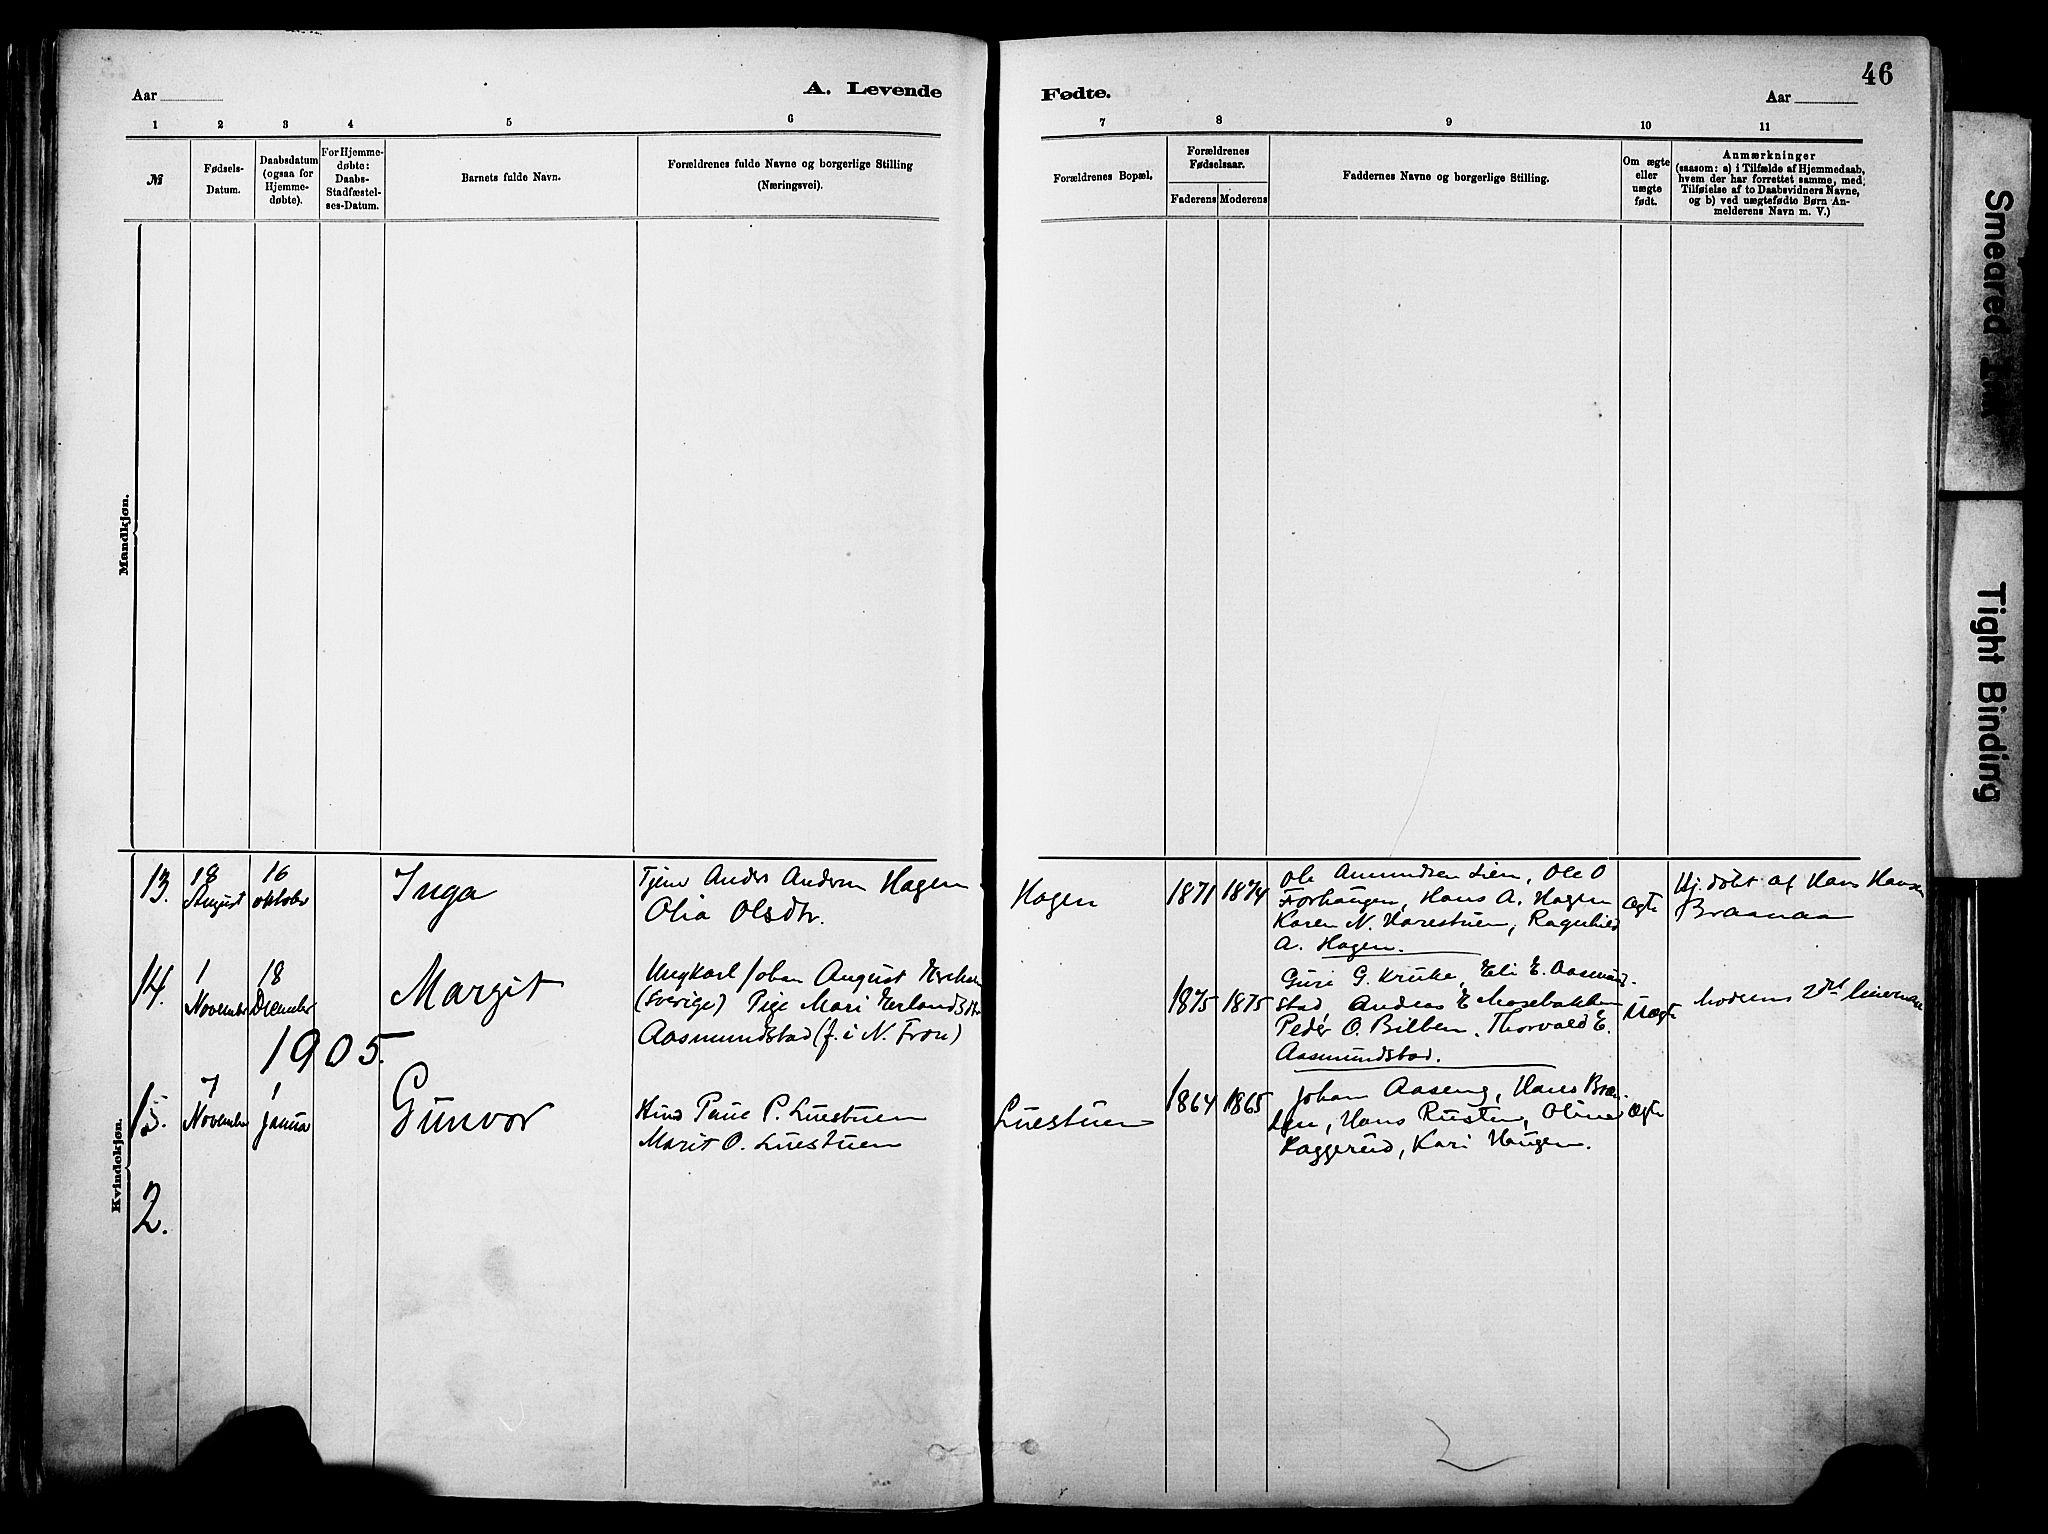 46
Aar
A. Levende
Fødte.
Aar
1 2 3 4 5 6 7 8 9 10 11
№
Fødsels-
Datum.
Daabsdatum
(ogsaa for
Hjemme-
døbte).
For Hjemme-
døbte:
Daabs-
Stadfæstel-
ses-Datum.
Barnets fulde Navn.
Forældrenes fulde Navne og borgerlige Stilling
(Næringsvei).
Forældrenes Bopæl.
Forældrenes
Fødselsaar.
Faderens Moderens
Faddernes Navne og borgerlige Stilling.
Om ægte
eller
uægte
født.
Anmærkninger
(saasom: a) i Tilfælde af Hjemmedaab,
hvem der har forrettet samme, med
Tilføielse af to Daabsvidners Navne,
og b) ved uægtefødte Børn An-
melderens Navn m. V.)
Mandkjøn.
Kvindekjøn.
13.
18
August
16
oktober
Inga
Tjener Anders Andersen Hagen
Olia Olsdtr.
Hagen
1871 1874
Ole Amundsen Lien, Ole O
Forhaugen, Hans A. Hagen
Karen N. Harestuen, Ragnhild
A. Hagen.
Ægte
Hj. døbt af Hans Hansen
Braanaa
14.
1
November
18
December
Margit
Ungkarl Johan August
(Sverige) Pige Mari Erlandsdtr.
Aasmundstad (f. i N. Fron)
1875 1875
Guri G. Kruke, Eli E. Aasmund-
stad Anders E Mosebakken
Peder O. Bilben, Thorvald E.
Aasmundstad.
Uægte
Moderens
1905.
15.
7
November
1
Januar
Gunvor
Paul P. Luestuen
Marit O. Luestuen
Luestuen
1864 1865
Johan Aaseng, Hans
Hans Rusten, Oline
Kaggerud, Kari Haugen.
Ægte
2.
Smeared Ink
Tight Binding